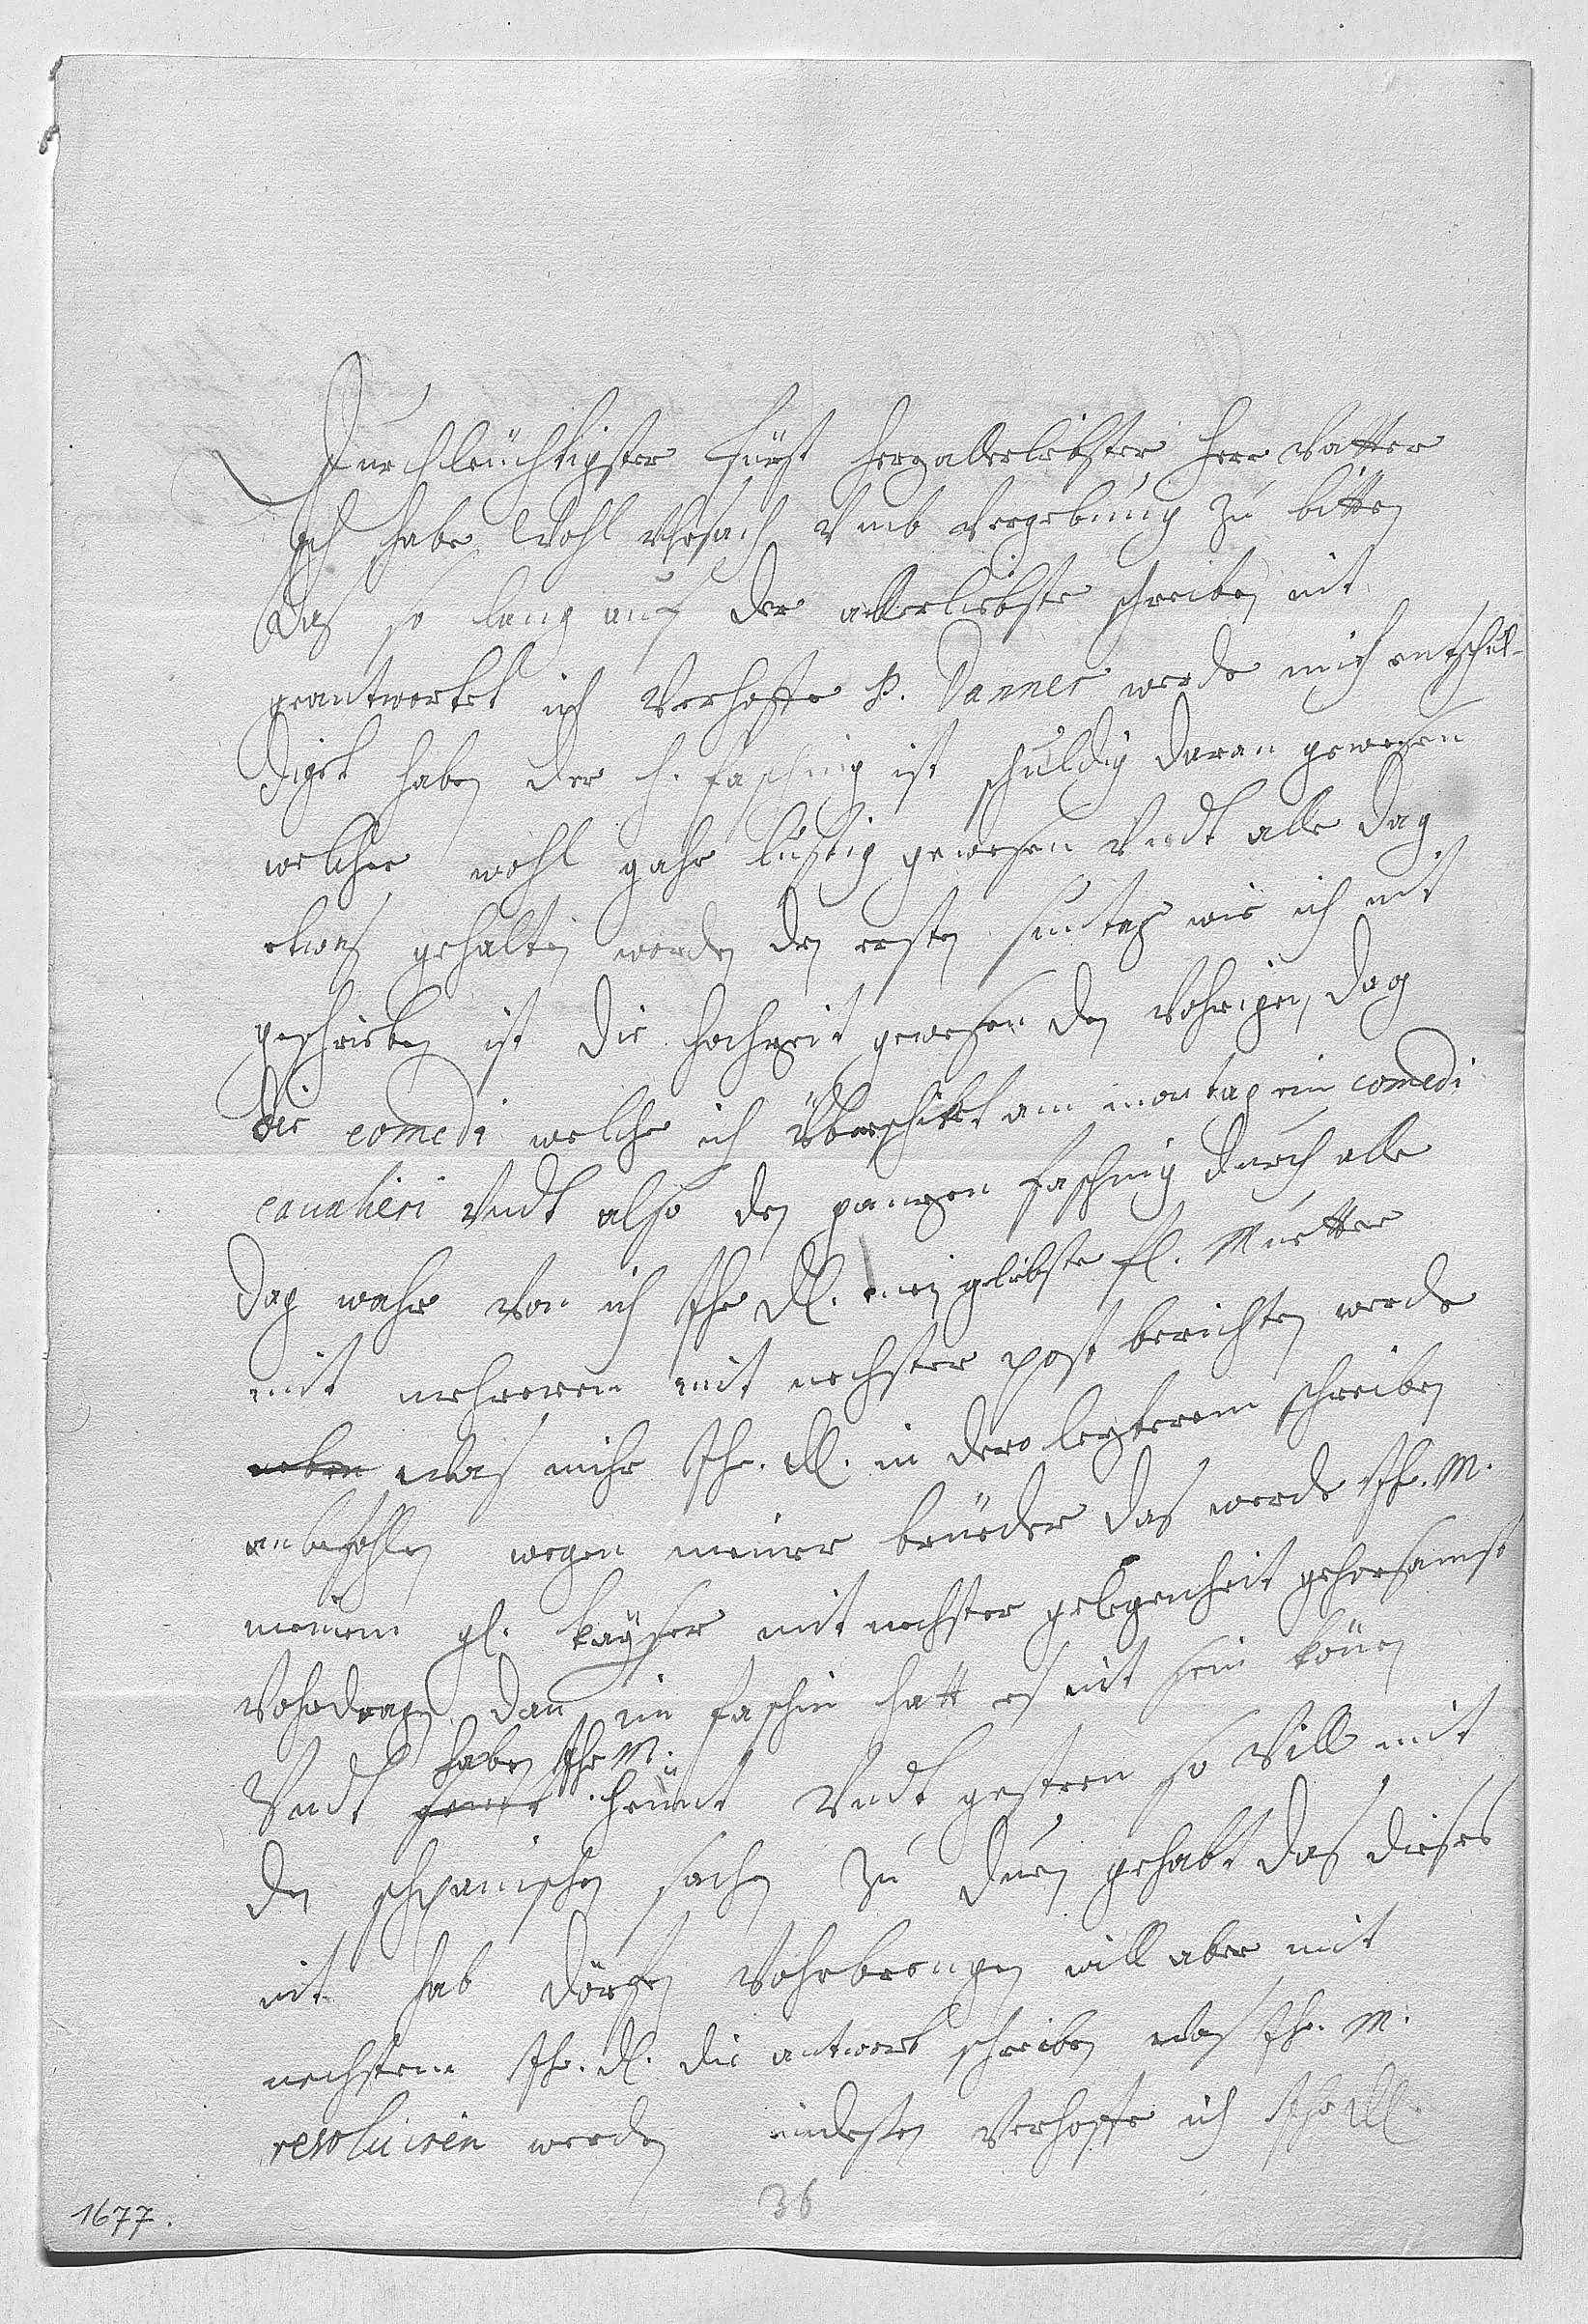 Durchleüchtigster Fürst herzallerlibster herr Vatter
Ich habe Wohl Vhrsach Vmb Vergebung zu bitten
das so lang auf der allerliebste schreiben nit
geantwortet ich Verhoffe P. Danner werde mich entschul-
digt haben der h. fasching ist schuldig daran gewesen
welcher wohl gahr lustig gewesen Vndt alle dag
etwas gehalten worden den ersten suntag wie ich nit
geschrieben ist die hochzeit gewesen den Vohrigen dag
die comedi welche ich Überschikt am montag ein comedi
caualieri Vndt also den ganzen fasching durch alle
dag wahr Von ich Ihr Dl. mein gelibste fl. Muetter
mit mehreren mit nechster post berichten werde
neben was mihr Ihr. Dl. in dero lezteren schreiben
anbefohlen wegen meiner brüeder das werde Ihr. M.
meinem gl. kayser mit nechster gelegenheit gehorsamst
Vohrdragen dan im faschin hatt es nit sein könen
haben Ihr M.
Vndt heünt Vndt gestern so Vill mit
den schpanischen sachen zu duen gehabt das dieses
nit hab dörfen Vohrbrengen will aber mit
nechstem Ihr. Dl. die antwort schreiben was Ihr. M.
resoluiren werden indessen Verhoffe ich Ihr Dl.
36
1677.